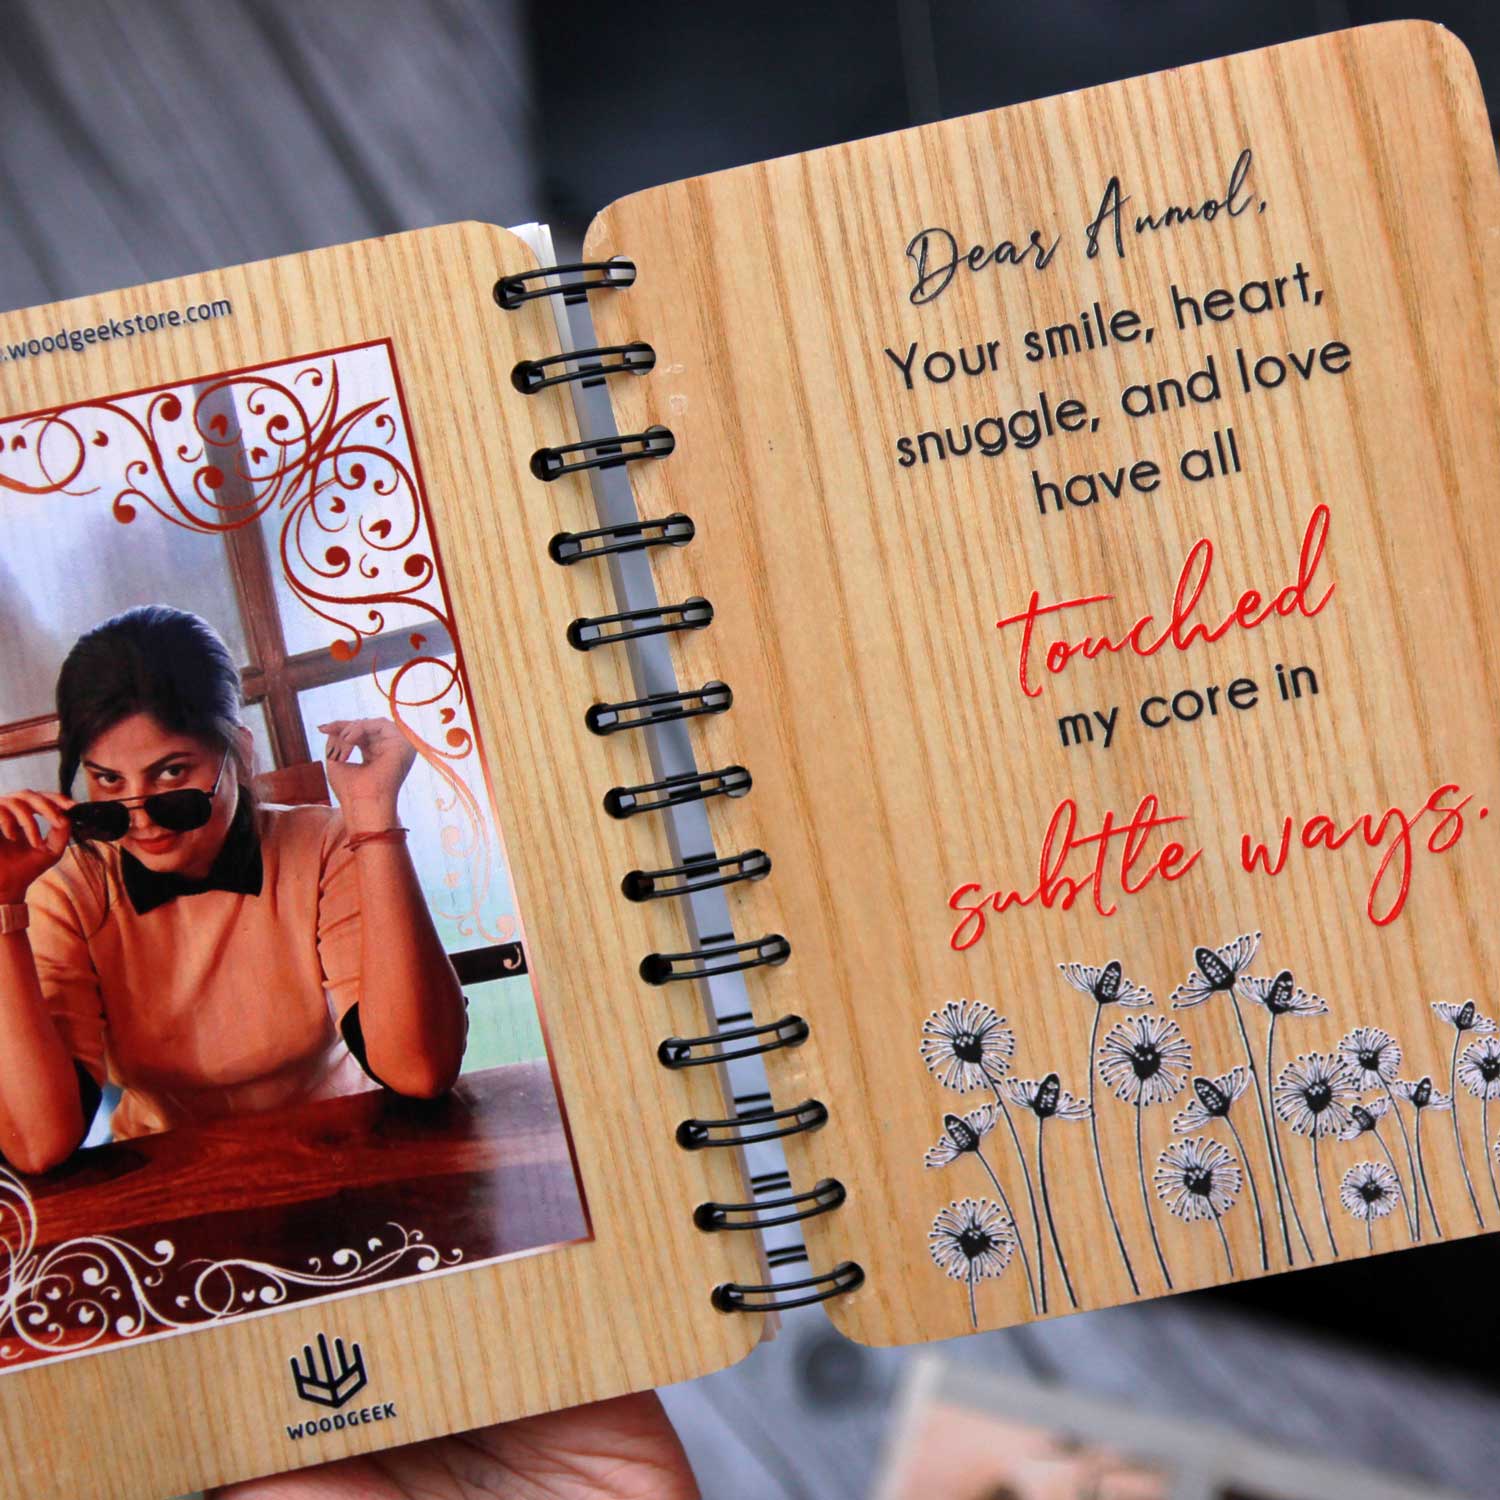 .woodgeekstore.com
WOODGEEK
Dear Anmol,
Your smile, heart,
snuggle, and love
have all
touched
my core in
subtle ways.